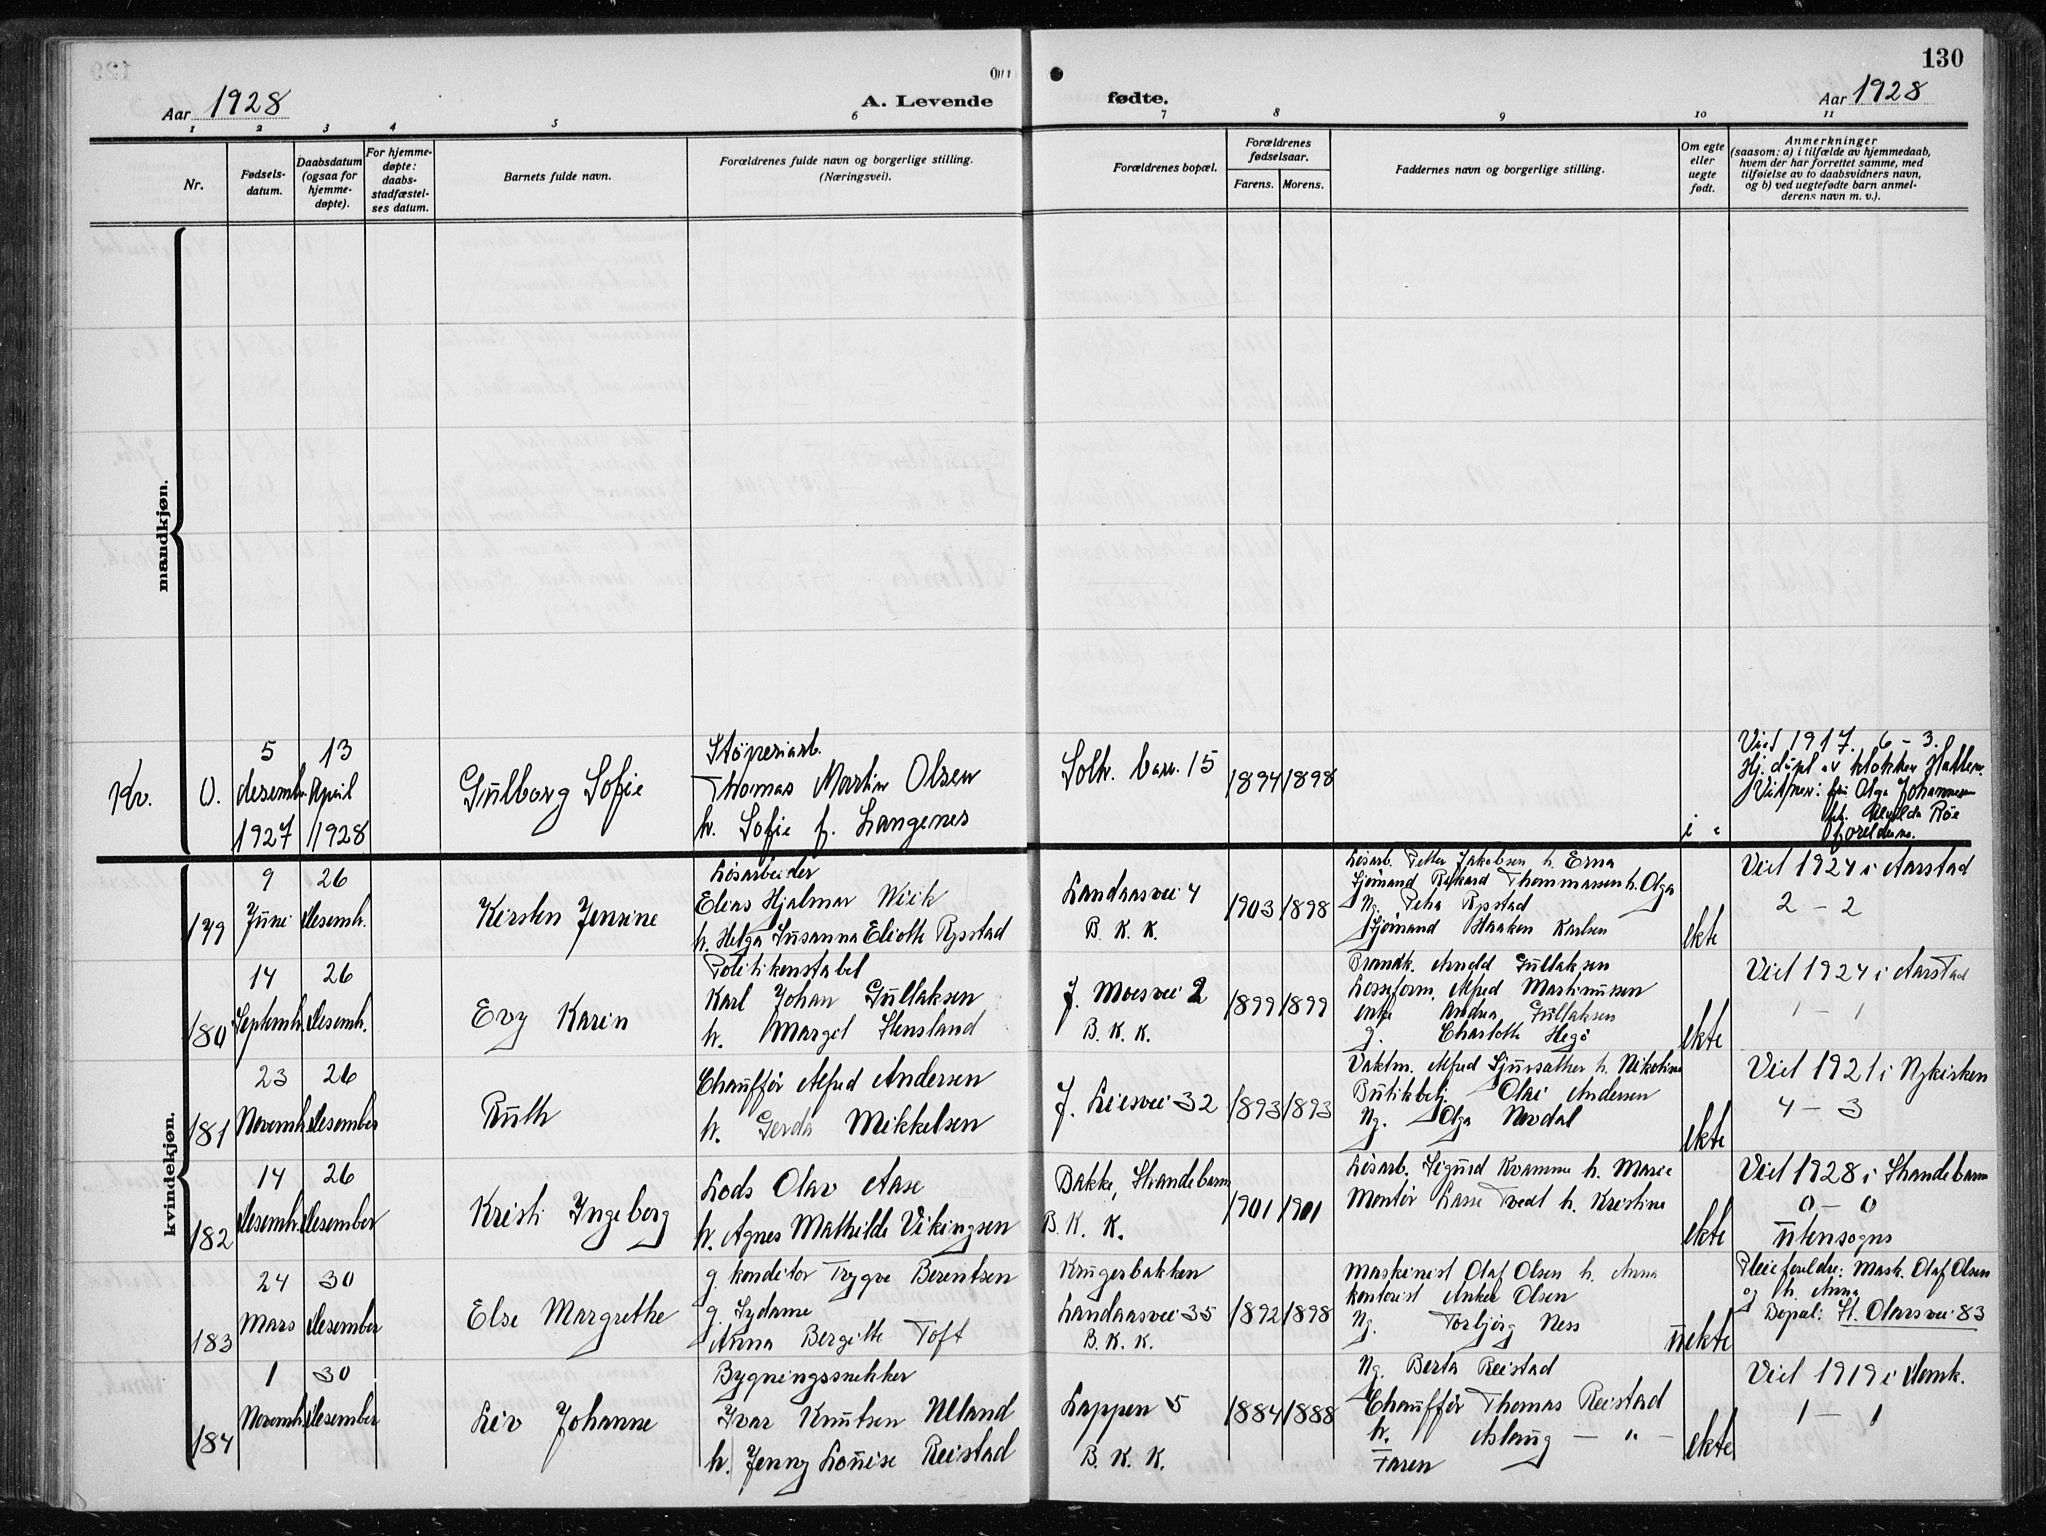 130
Aar 1928
A. Levende
fødte.
Aar 1928
1 2 3 4 5 6 7 8 9 10 11
Nr.
Fødsels-
datum.
Daabsdatum
(ogsaa for
hjemme-
døpte).
For hjemme-
døpte:
daabs-
stadfæstel-
ses datum.
Barnets fulde navn.
Forældrenes fulde navn og borgerlige stilling.
(Næringsvei).
Forældrenes bopæl.
Forældrenes
fødselsaar.
Farens. Morens.
Faddernes navn og borgerlige stilling.
Om egte
eller
uegte
født.
Anmerkninger
(saasom: a) i tilfælde av hjemmedaab,
hvem der har forrettet samme, med
tilføielse av to daabsvidners navn,
og b) ved uegtefødte barn anmel-
derens navn m. v.).
mandkjøn.
Kv.
0.
5
desembr.
1927
13
April
1928
Gulborg Sofie
Støperiarb.
Thomas Martin Olsen
h. Sofie f. Langenes
Solh. barr. 15
1894 1898
Viet 1917. 6 – 3.
Hj. døpt av klokker Hatlem.
Vitner: fru Olga Johannesen
frk. Alvilda Röe
foreldrene.
kvindekjøn.
179
9
Juni
26
desemb.
Kirsten Jensine
Løsarbeider
Elias Hjalmar Wiik
h. Helga Susanna Eliotte Rypstad
Landaasvei 4
B. K. K.
1903 1898
Løsarb. Petter Jakobsen h. Erna
Sjømand Rikard Thommassen h. Olga
Ng. Petra Rypstad
Sjømand Haaken Karlsen
ekte
Viet 1924 i Aarstad
2 – 2
180
14
Septemb.
26
desemb.
Evy Karin
Politikonstabel
Karl Johan Gullaksen
h. Margit Stensland
J. Moesvei 2
B. K. K.
1899 1899
Brandk. Arndd Gullaksen
Losseform. Alfred Martinussen
enke Andrea Gullaksen
g. Charlotte Hegø
ekte
Viet 1924 i Aarstad
1 – 1
181
23
Novemb.
26
desember
Ruth
Chauffør Alfred Andersen
h. Gerda Mikkelsen
J. Liesvei 32
1893 1893
Vaktm. Alfred Sjursæther h. Nikoline
Butikbetj. Olai Andersen
Ng. Olga Nevdal
ekte
Viet 1921 i Nykirken
4 – 3
182
14
desemb.
26
desember
Kristi Ingeborg
Lods Olav Aase
h. Agnes Mathilde Vikingsen
Bakke, Strandebarm
B. K. K.
1901 1901
Løsarb. Sigurd Kvamme h. Marie
Montør Lasse Tvedt h. Kristine
ekte
Viet 1928 i Strandebarm
0 – 0
utensogns
183
24
Mars
30
desember
Else Margrethe
g. konditor Trygve Berentsen
g. Sydame
Anna Bergitte Toft
Krugerbakken
Landaasvei 35
B. K. K.
1892 1898
Maskinist Olaf Olsen h. Anna
kontorist Anker Olsen
Ng. Torbjørg Ness
uekte
Pleieforeldre: Mask. Olaf Olsen
og h. Anna
Bopæl: St. Olavsvei 83
184
1
Novemb.
30
desember
Liv Johanne
Bygningssnekker
Ivar Knutsen Ulland
h. Jenny Louise Reistad
Lappen 5
B. K. K.
1884 1888
Ng. Berta Reistad
Chauffør Thomas Reistad
h. Aslaug – „ –
Faren
ekte
Viet 1919 i domk.
1 – 1